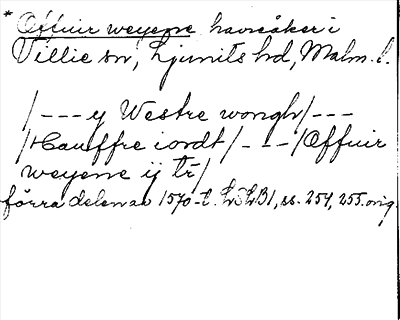 * Offuir weyenne havreåker i
Villie sn, Ljunits hd, Malm. l.
/--- y Westre wongh/---
/Hauffre iordt/---/Offuir
weyenne ij tr/
förra delen av 1570-t. LSLB1, ss. 254, 255. orig.